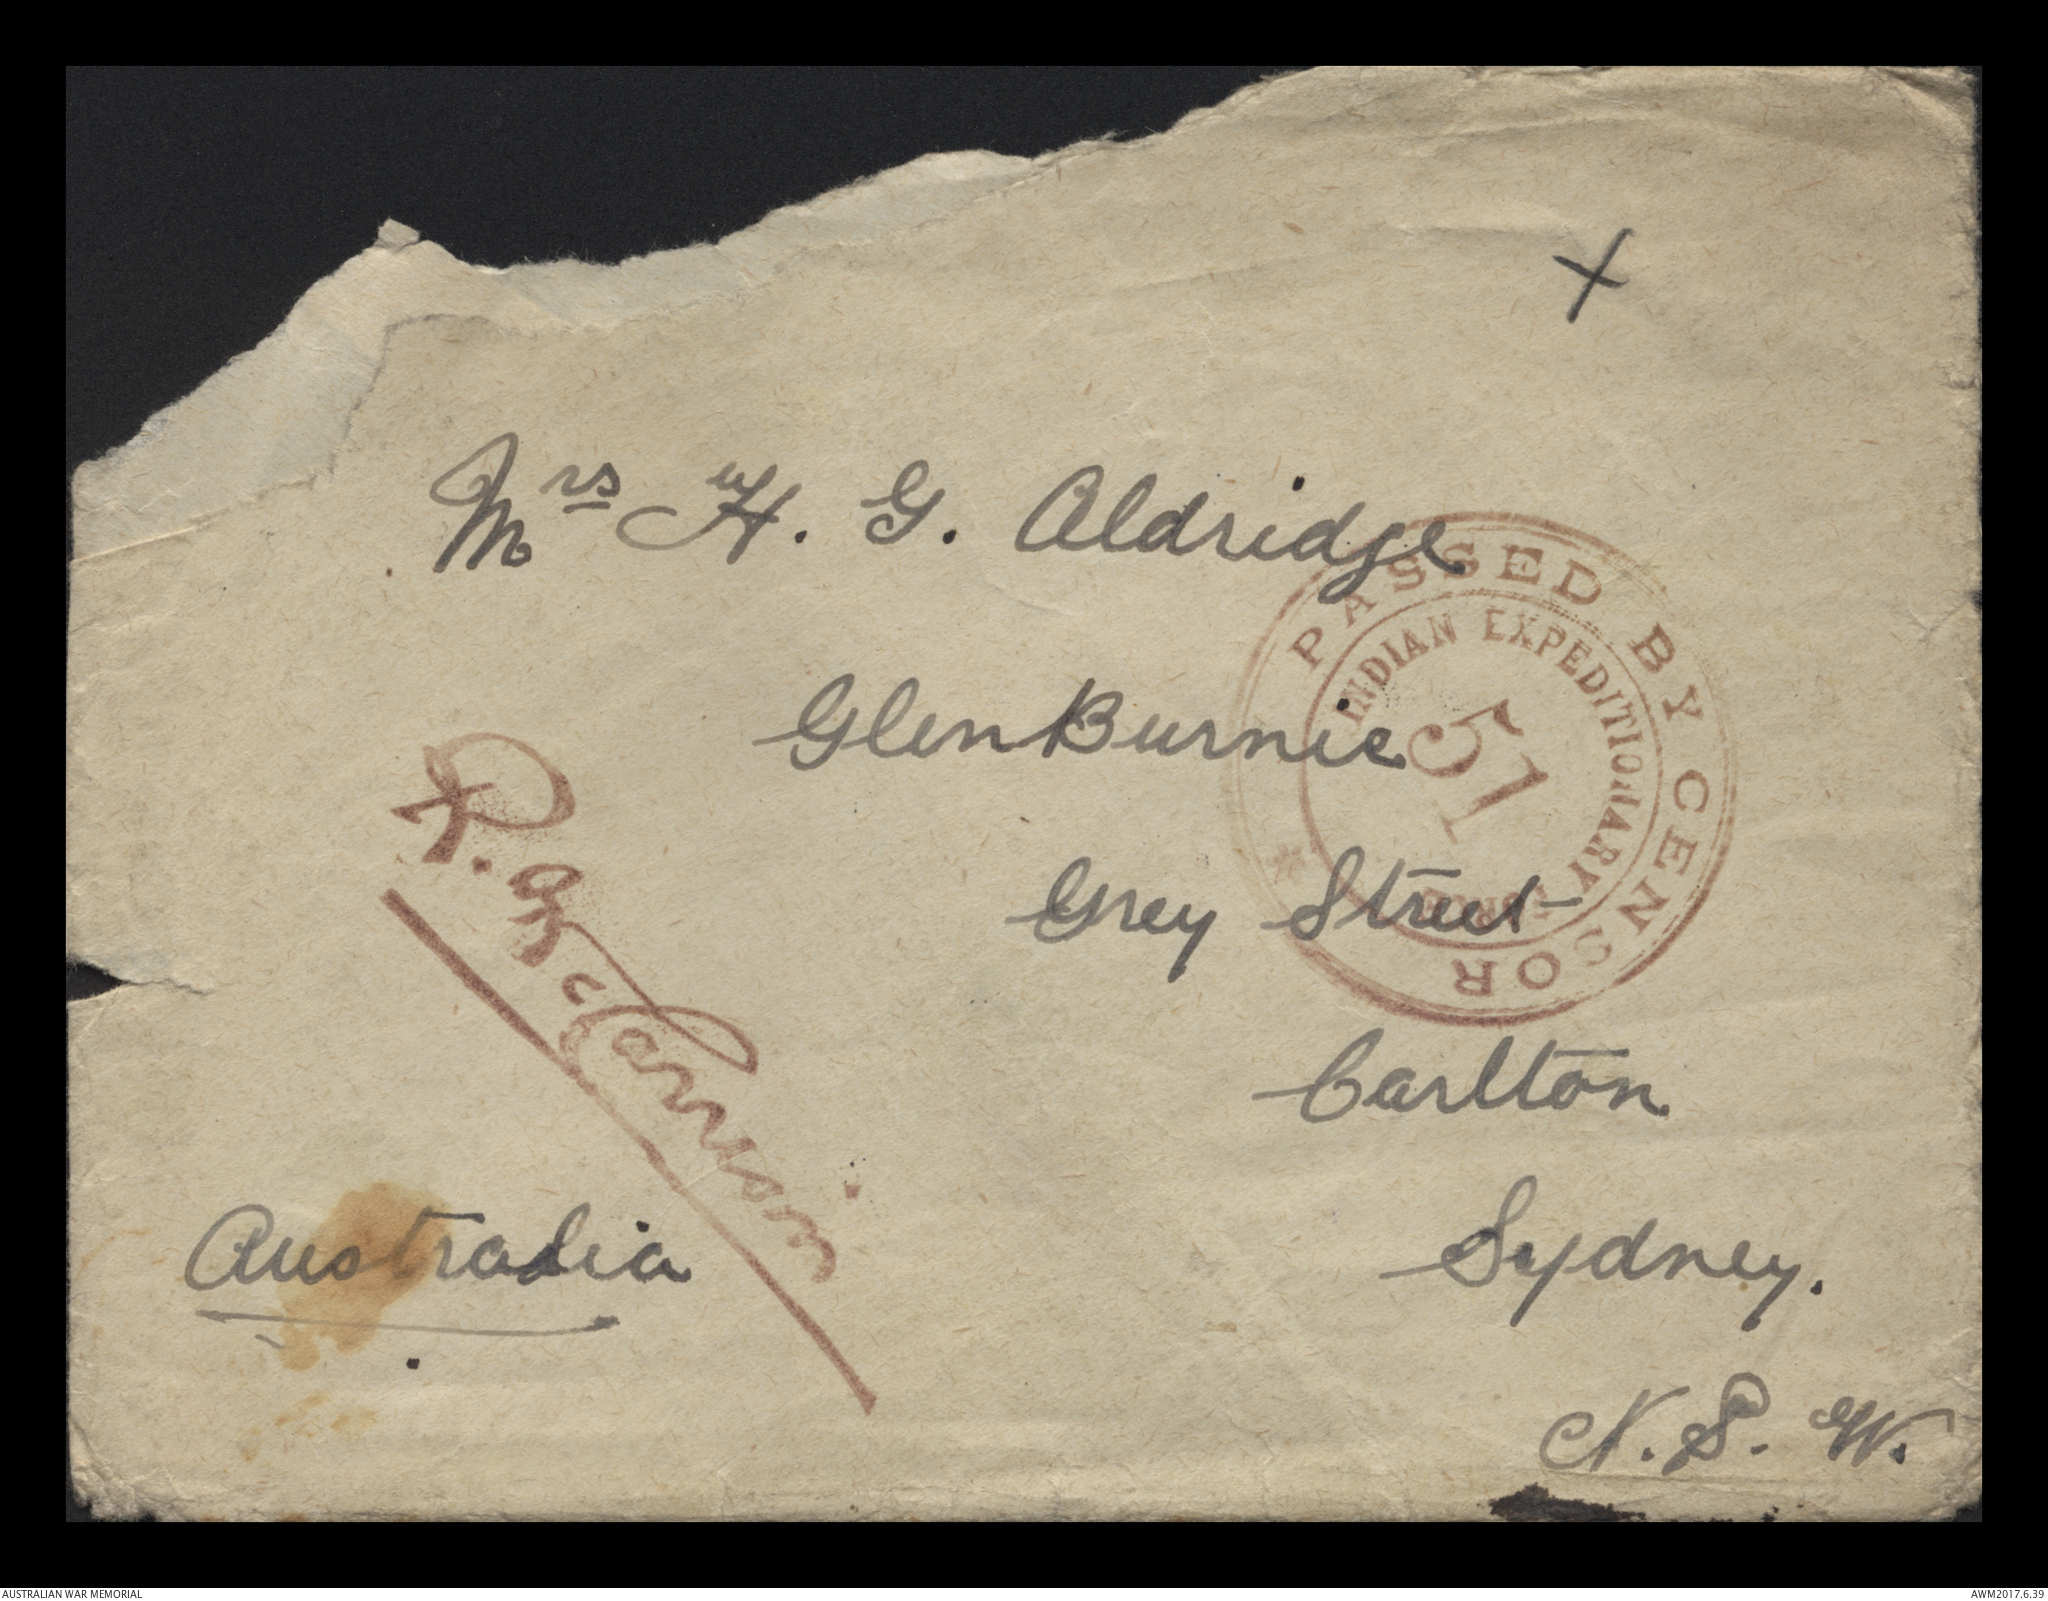 Mrs H. G. Aldridge
Glen Burnie
Grey Street
Carlton
Sydney.
N. S. W.
Australia
PASSED BY CENSOR
INDIAN EXPEDITIONARY FORCE
51
AUSTRALIAN WAR MEMORIAL
AWM2017.6.39